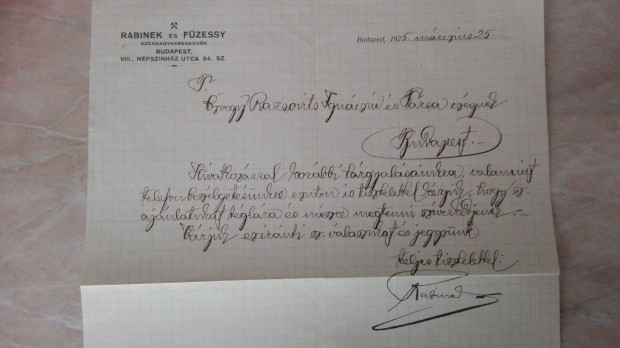 RABINEK ÉS FÜZESSY
SZÉNNAGYKERESKEDŐK
BUDAPEST,
VIII., NÉPSZINHÁZ-UTCA 34. SZ.
Budapest, 1925. március 25.
T.
Özvegy Ignácné és Társa cégnek
Budapest.
Hivatkozással korábbi tárgyalásainkra, valamint
telefonbeszélgetésünkre ezúton is tisztelettel kérjük, hogy sz.
ajánlatukat téglára és mészre megtenni sziveskedjenek.
Várjuk eziránti sz. válaszukat és jegyzünk
teljes tisztelettel:
Rabinek